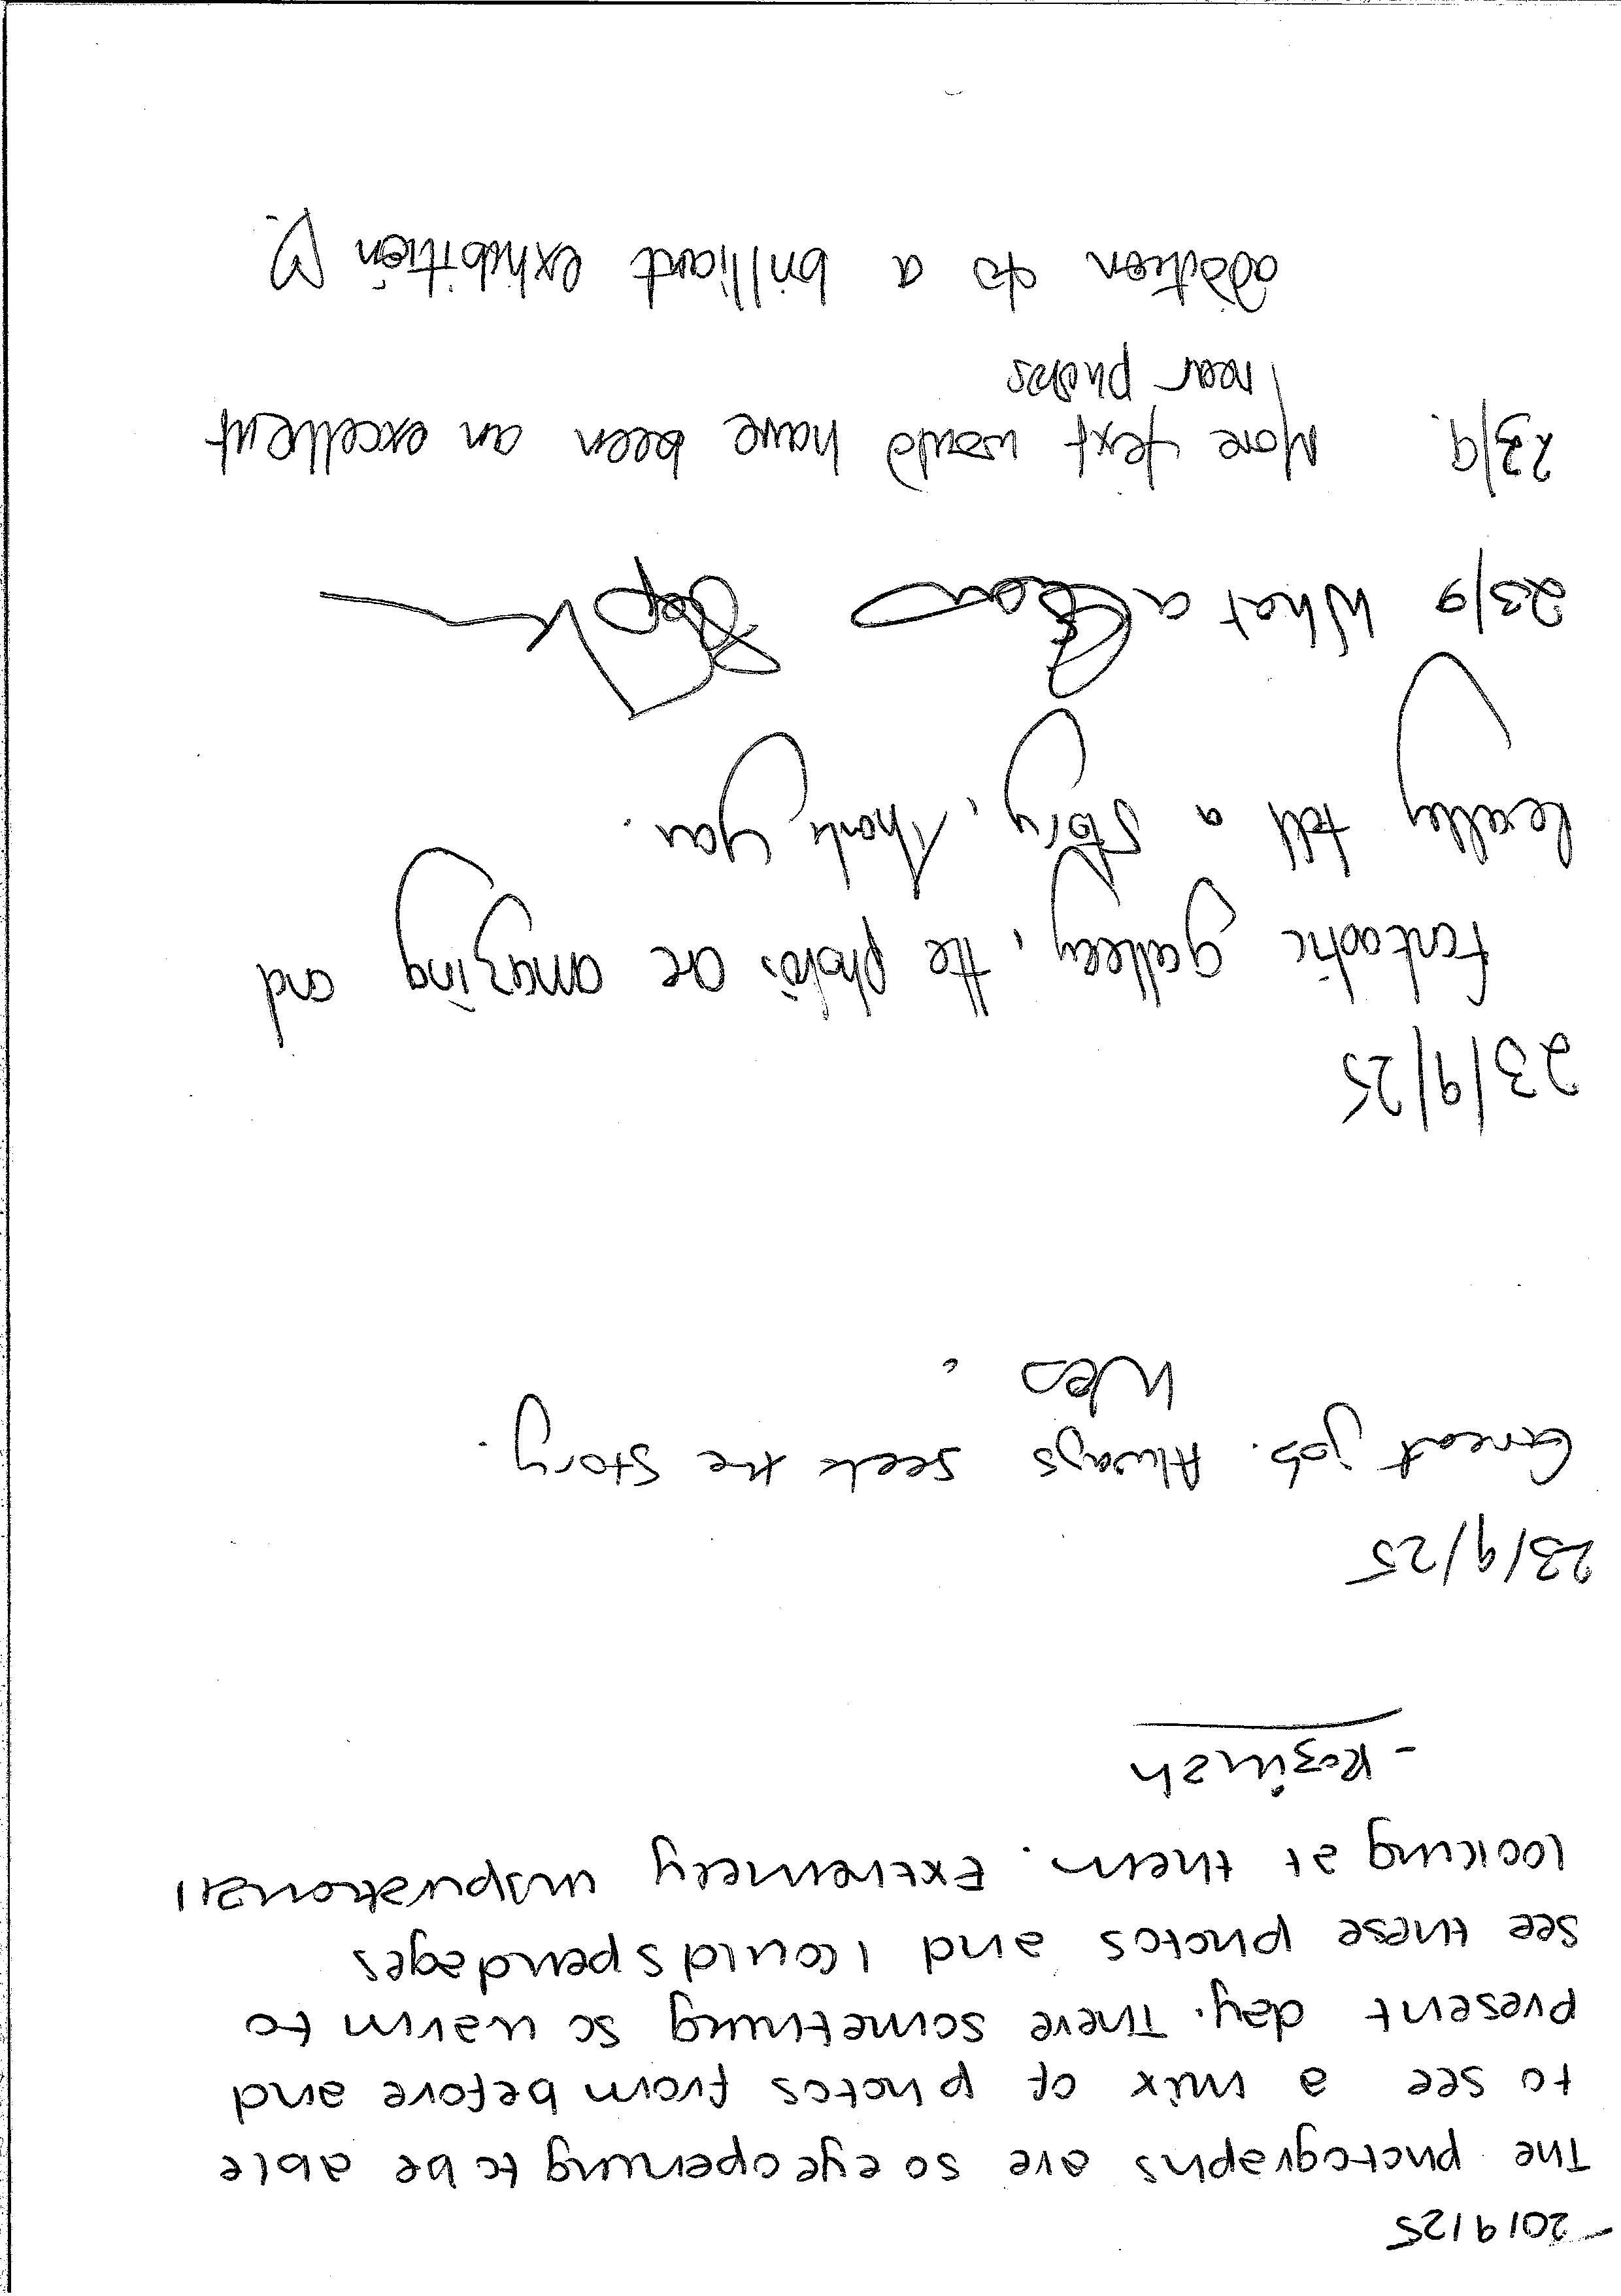 - 20/9/25
The photographs are so eye opening to be able
to see a mix of photos from before and
present day. There something so warm to
see these photos and I could spend ages
looking at them. Extremely inspirational!
23/9/25
Great job. Always seek the story.
Wes.
23/9/25
Fantastic gallery, the photos are amazing and
really tell a story, thank you.
23/9 What a
23/9. More text would have been an excellent
near photos
addition to a brilliant exhibition ♡.